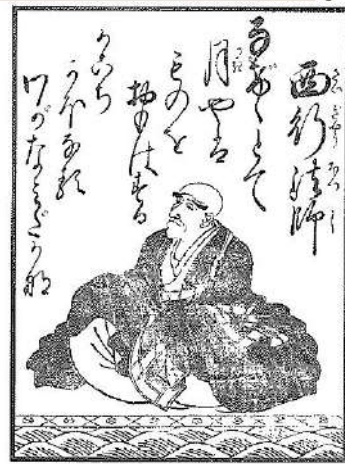 西行法師
なげけとて
月やは
ものを
おもはする
かこち
かほなる
わがなみだかな